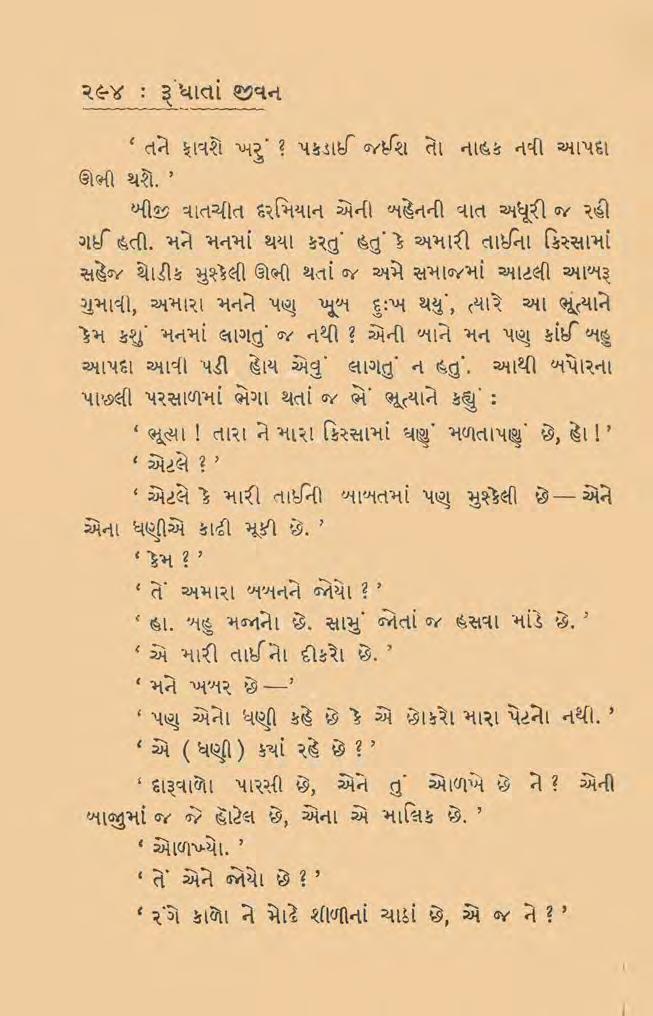 ૨૯૪ : રૂંધાતાં જીવન
‘ તને ફાવશે ખરું ? પકડાઈ જઈશ તો નાહક નવી આપદા
ઊભી થશે. ’
બીજી વાતચીત દરમિયાન એની બહેનની વાત અધૂરી જ રહી
ગઈ હતી. મને મનમાં થયા કરતું હતું કે અમારી તાઈના કિસ્સામાં
સહેજ થોડીક મુશ્કેલી ઊભી થતાં જ અમે સમાજમાં આટલી આબરૂ
ગુમાવી, અમારા મનને પણ ખૂબ દુઃખ થયું, ત્યારે આ ભૂત્યાને
કેમ કશું મનમાં લાગતું જ નથી ? એની બાને મન પણ કાંઈ બહુ
આપદા આવી પડી હોય એવું લાગતું ન હતું. આથી બપોરના
પાછલી પરસાળમાં ભેગા થતાં જ મેં ભૂત્યાને કહ્યું :
‘ ભૂત્યા ! તારા ને મારા કિસ્સામાં ઘણું મળતાપણું છે, હો ! ’
‘ એટલે ? ’
‘ એટલે કે મારી તાઈની બાબતમાં પણ મુશ્કેલી છે — એને
એના ધણીએ કાઢી મૂકી છે. ’
‘ કેમ ? ’
‘ તેં અમારા બબનને જોયો ? ’
‘ હા. બહુ મજાનો છે. સામું જોતાં જ હસવા માંડે છે. ’
‘ એ મારી તાઈનો દીકરો છે. ’
‘ મને ખબર છે —’
‘ પણ એનો ધણી કહે છે કે એ છોકરો મારા પેટનો નથી. ’
‘ એ ( ધણી ) ક્યાં રહે છે ? ’
‘ દારૂવાળો પારસી છે, એને તું ઓળખે છે ને ? એની
બાજુમાં જ જે હૉટેલ છે, એના એ માલિક છે. ’
‘ ઓળખ્યો. ’
‘ તેં એને જોયો છે ? ’
‘ રંગે કાળો ને મોઢે શીળીનાં ચાઠાં છે, એ જ ને ? ’